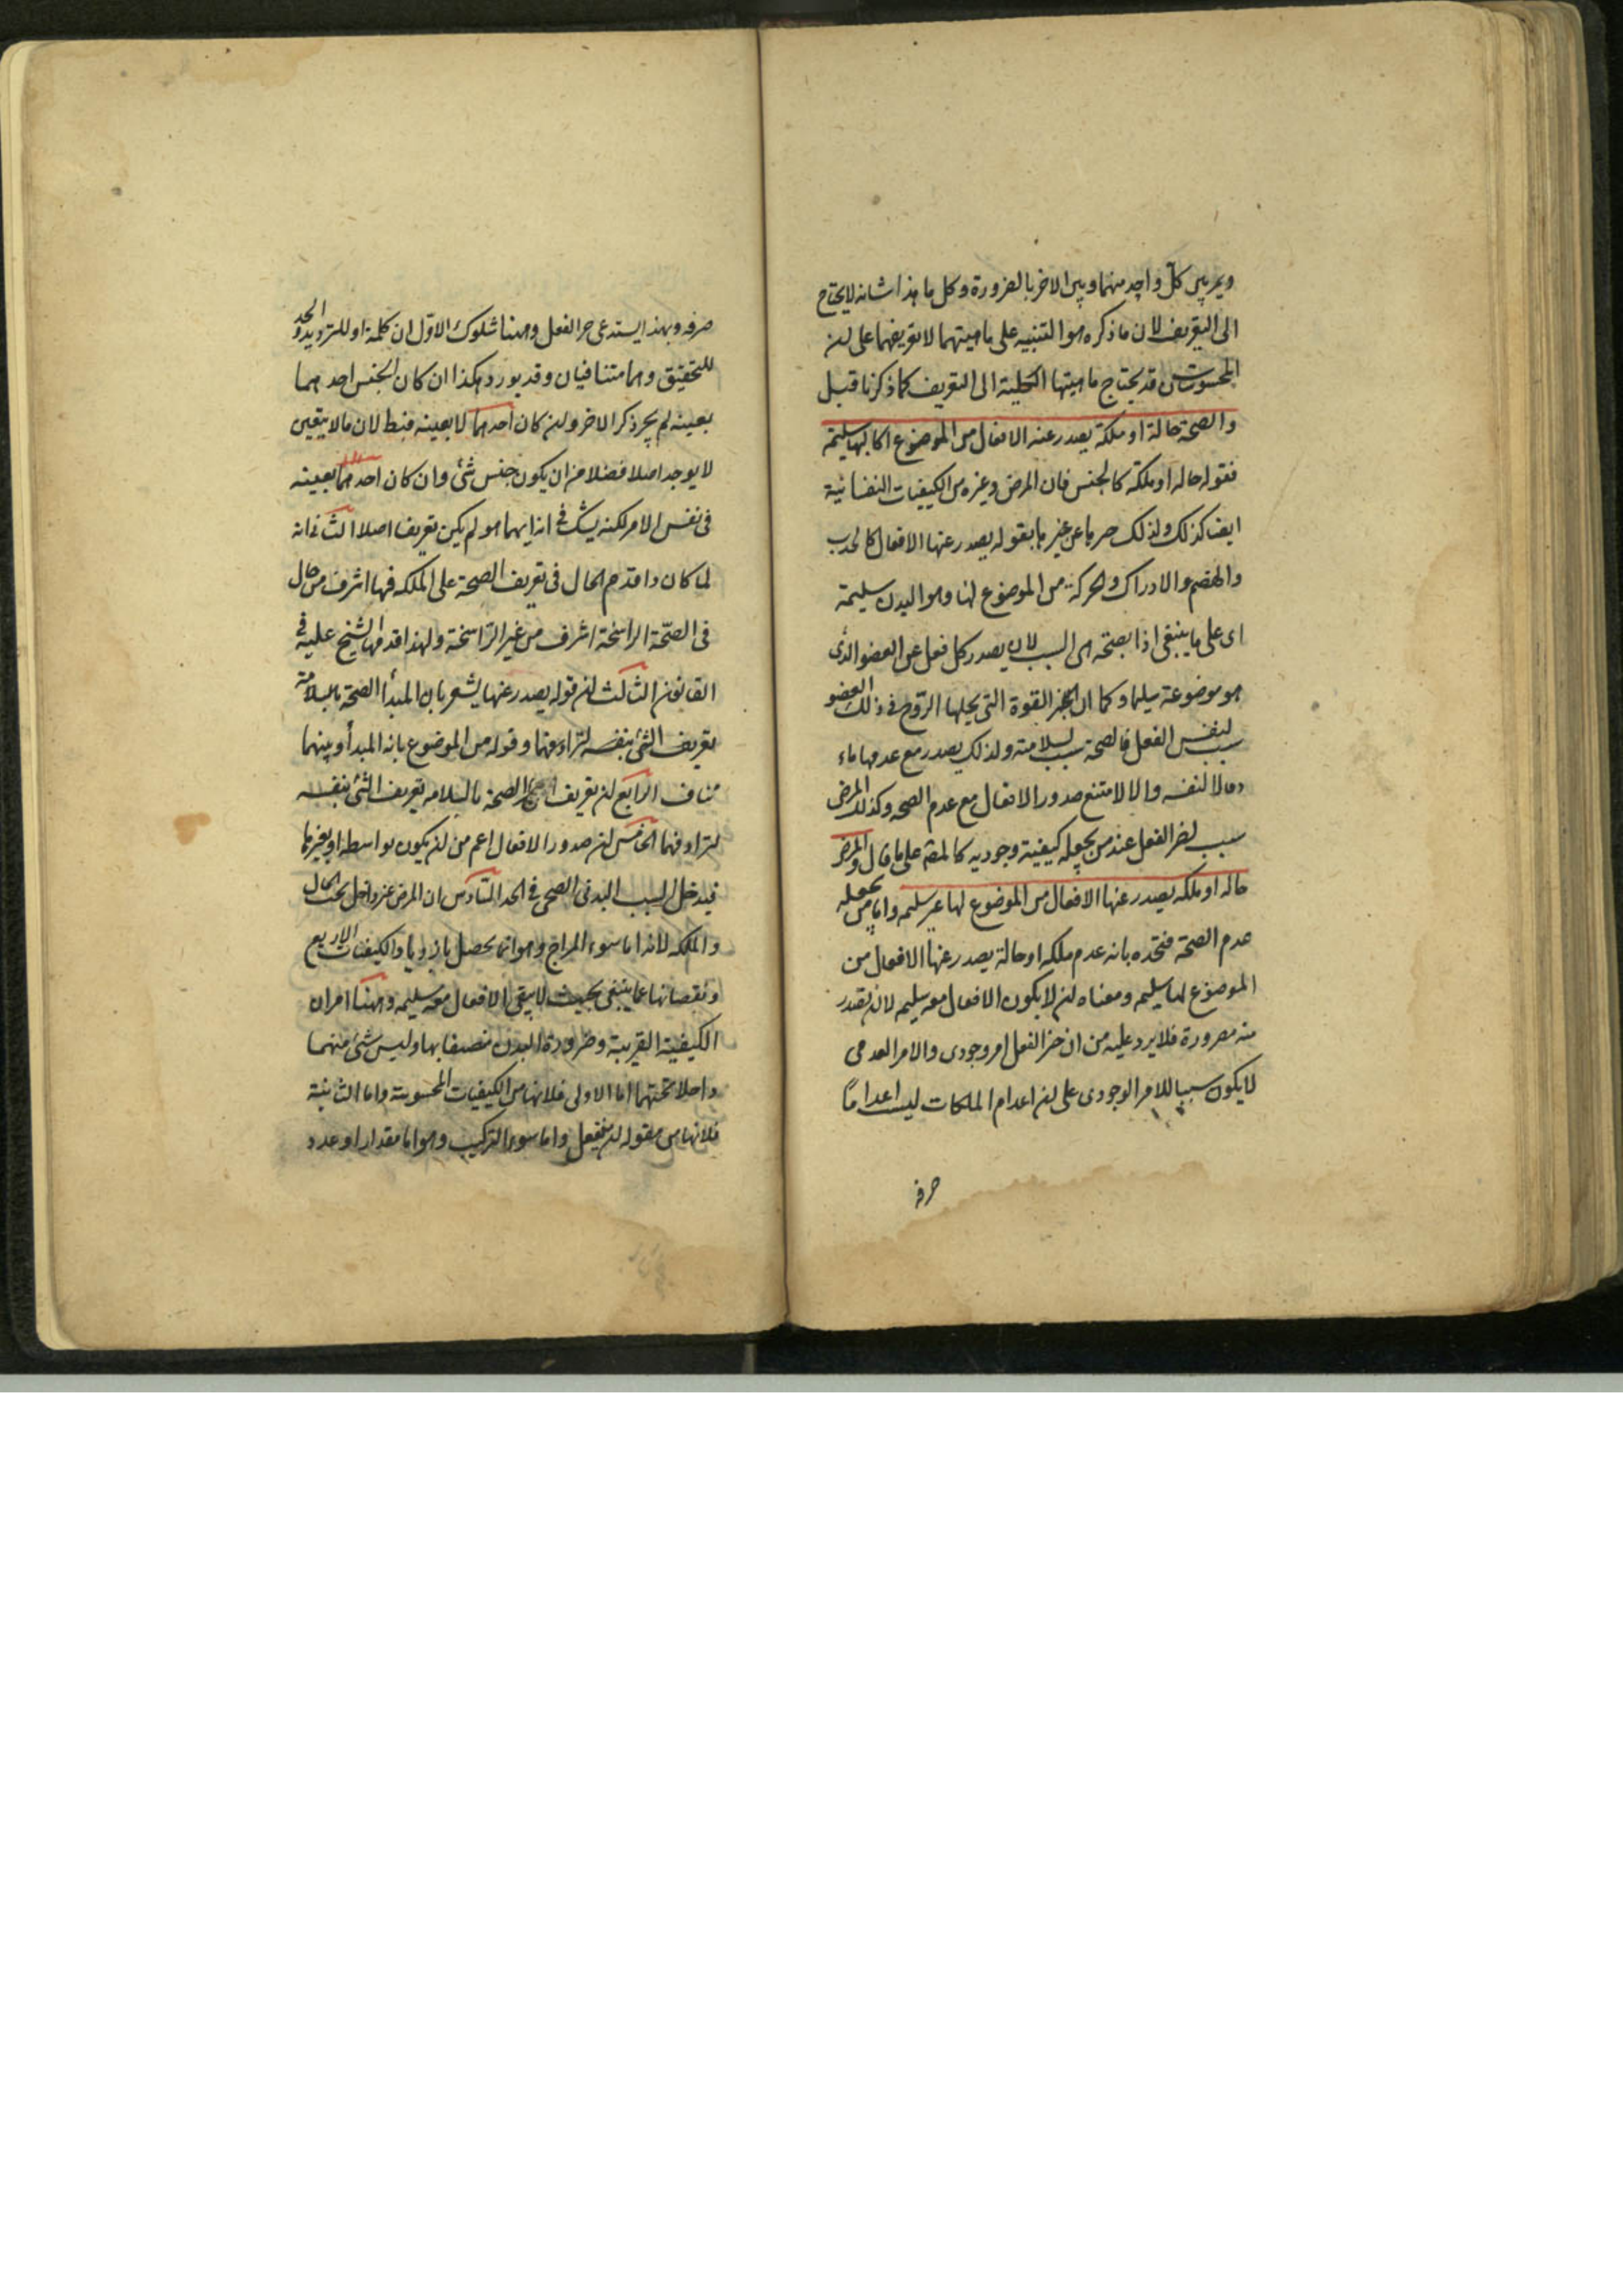 ويميز بين كل واحد منهما وبين الاخر بالضرورة وكل ما هذا شانه لا يحتاج
الى التعريف لان ما ذكره هو التنبيه على ماهيتهما لا تعريفهما على ان
المحسوسات قد يحتاج ماهيتها الكلية الى التعريف كما ذكرنا قبل
والصحة حالة او ملكة يصدر عنه الافعال من الموضوع لها سليمة
فقوله حاله او ملكة كالجنس فان المرض وغيره من الكيفيات النفسانية
ايضا كذلك ولذلك عن غيرها بقوله يصدر عنها الافعال كالجذب
والهضم والادراك والحركة من الموضوع لها وهو البدن سليمة
اى على ما ينبغى اذا بصحته هى السبب لان يصدر كل فعل عن العضو الذى
هو موضوعة سليما وكما ان القوة التى يحلها الروح فى ذلك العضو
سبب لنفس الفعل فالصحة سبب لسلامته ولذلك يصدر مع عدمها ماء
لا لنفسه والا لامتنع صدور الافعال مع عدم الصحه وكذلك المرض
سبب لضرر الفعل عند من يجعله كيفية وجوديه كالمصَ على ما قال والمرض
حاله او ملكه يصدر عنها الافعال من الموضوع لها غير سليمه واما من يجعله
عدم الصحة فتحده بانه عدم ملكه او حالة يصدر عنها الافعال من
الموضوع لها سليمه ومعناه ان لا يكون الافعال معه سليم لان يصدر
منه ضرورة فلا يرد عليه من ان ضرر الفعل امر وجودى والامر العدمى
لا يكون سببا للامر الوجودى على ان اعدام الملكات ليست اعداما
صرفه
صرفه وبهذا يستدعى ضرر الفعل وههنا شكوك الاوّل ان كلمة او للترديد والحد
للتحقيق وهما متنافيان وقد يورد هكذا ان كان الجنس احدهما
بعينه لم يجز ذكر الاخر وان كان احدهما لا بعينه فبط لان ما لا يتعين
لا يوجد اصلا فضلا من ان يكون جنس شئ وان كان احدهما بعينه
فى نفس الامر لكنه يشك فى انه ايهما هو لم يكن تعريف اصلا الثانى انه
لما كان واقدم الحال فى تعريف الصحة على الملكه فهما اشرف من حال
فى الصحّة الراسخة اشرف من غير الرّاسخة ولهذا قدمها الشيخ عليه فى
القانون الثالث ان قوله يصدر عنها يشعر بان المبدأ الصحة بالسلامة
تعريف الشئ بنفسه لترادفهما وقوله من الموضوع بانه المبدأ وبينهما
مناف الرابع ان تعريف الصحة بالسلامه تعريف الشئ بنفسه
لترادفهما الخامس ان صدور الافعال اعم من ان يكون بواسطه او بغيرها
فيدخل السبب البدنى الصحى فى الحد السّادس ان المرض غير داخل تحت الحال
والملكه لانه اما سوء المزاج وهو انما يحصل بازدياد الكيفيات الاربع
ونقصانها عما ينبغى بحيث لا يبقى الافعال معه سليمه وههنا امران
الكيفية القريبة وصيرورة البدن متصفا بها وليس شئ منهما
داخلا تحتهما اما الاولى فلانها من الكيفيات المحسوسة واما الثانية
فلانها من مقوله ان ينفعل واما سوء التركيب وهو اما مقدار او عدد